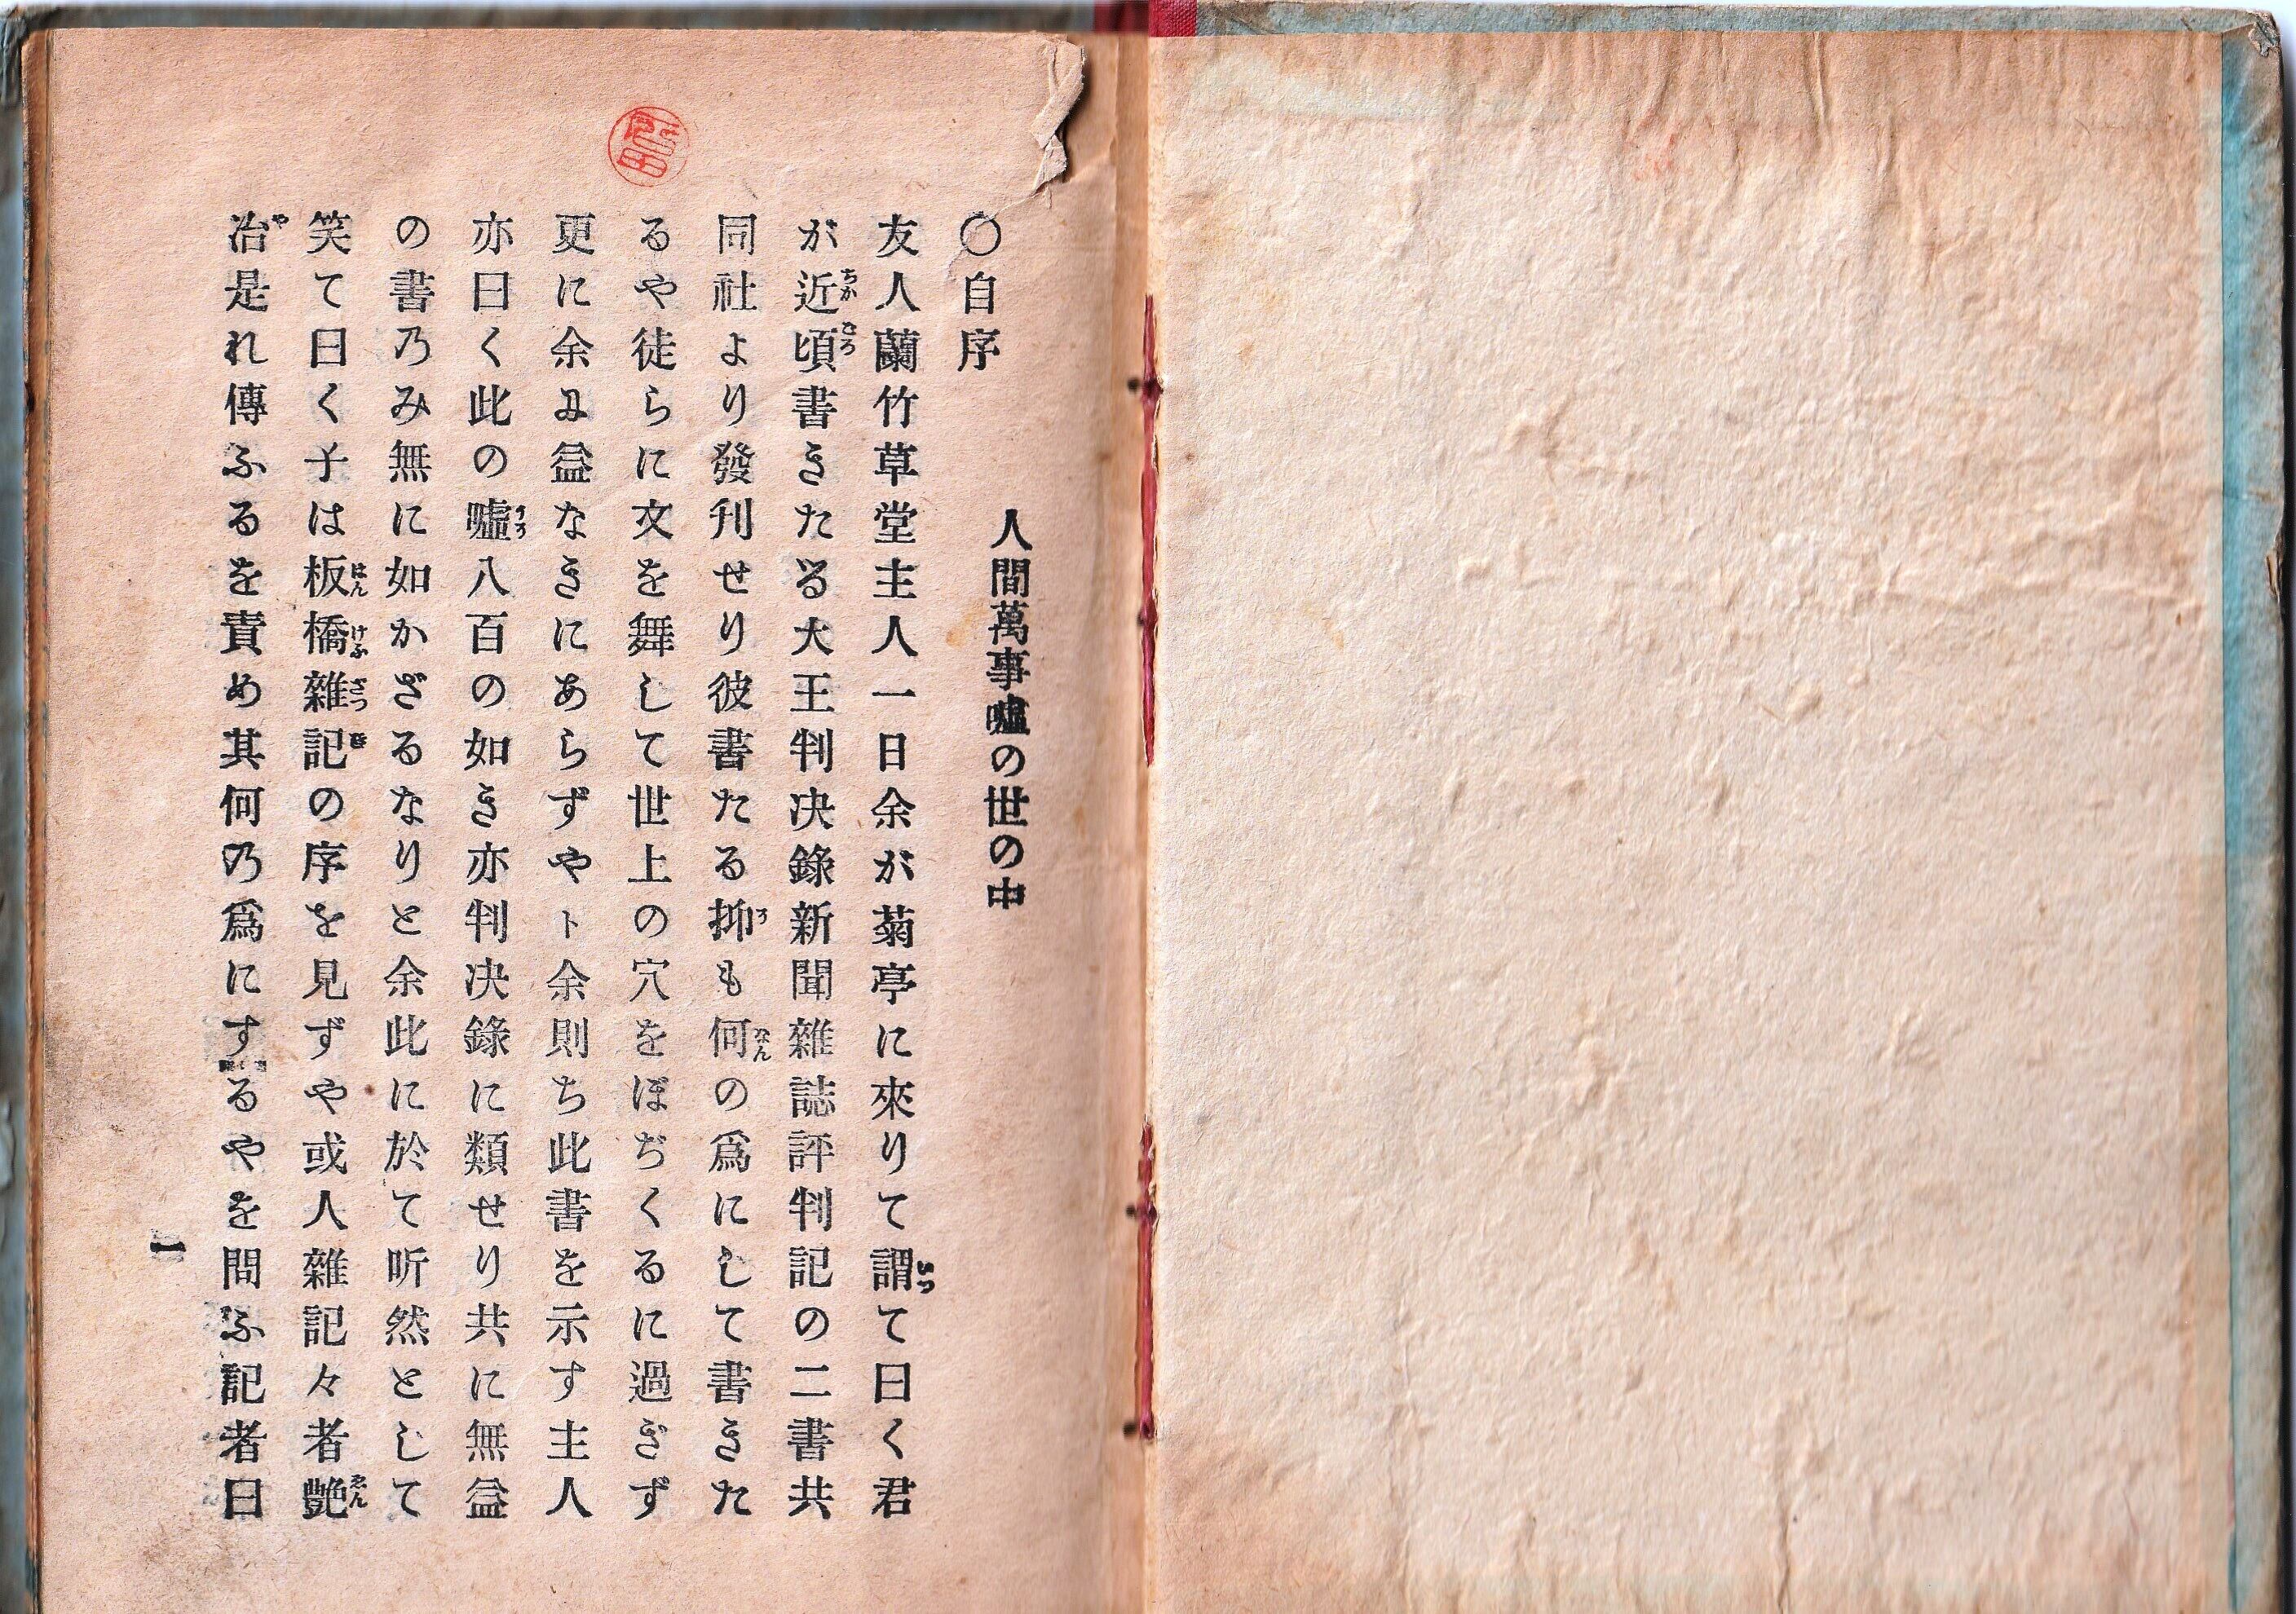 人間萬事噓の世の中
〇自序
友人蘭竹草堂主人一日余が菊亭に來りて謂て曰く君
が近頃書きたる大王判决錄新聞雜誌評判記の二書共
同社より發刊せり彼書たる抑も何の爲にして書きた
るや徒らに文を舞して世上の穴をほぢくるに過ぎず
更に余に益なきにあらずやト余則ち此書を示す主人
亦曰く此の噓八百の如き亦判决錄に類せり共に無益
の書乃み無に如かざるなりと余此に於て听然として
笑て曰く子は板橋雜記の序を見ずや或人雜記々者艶
冶是れ傳ふるを責め其何乃爲にするやを問ふ記者曰
一